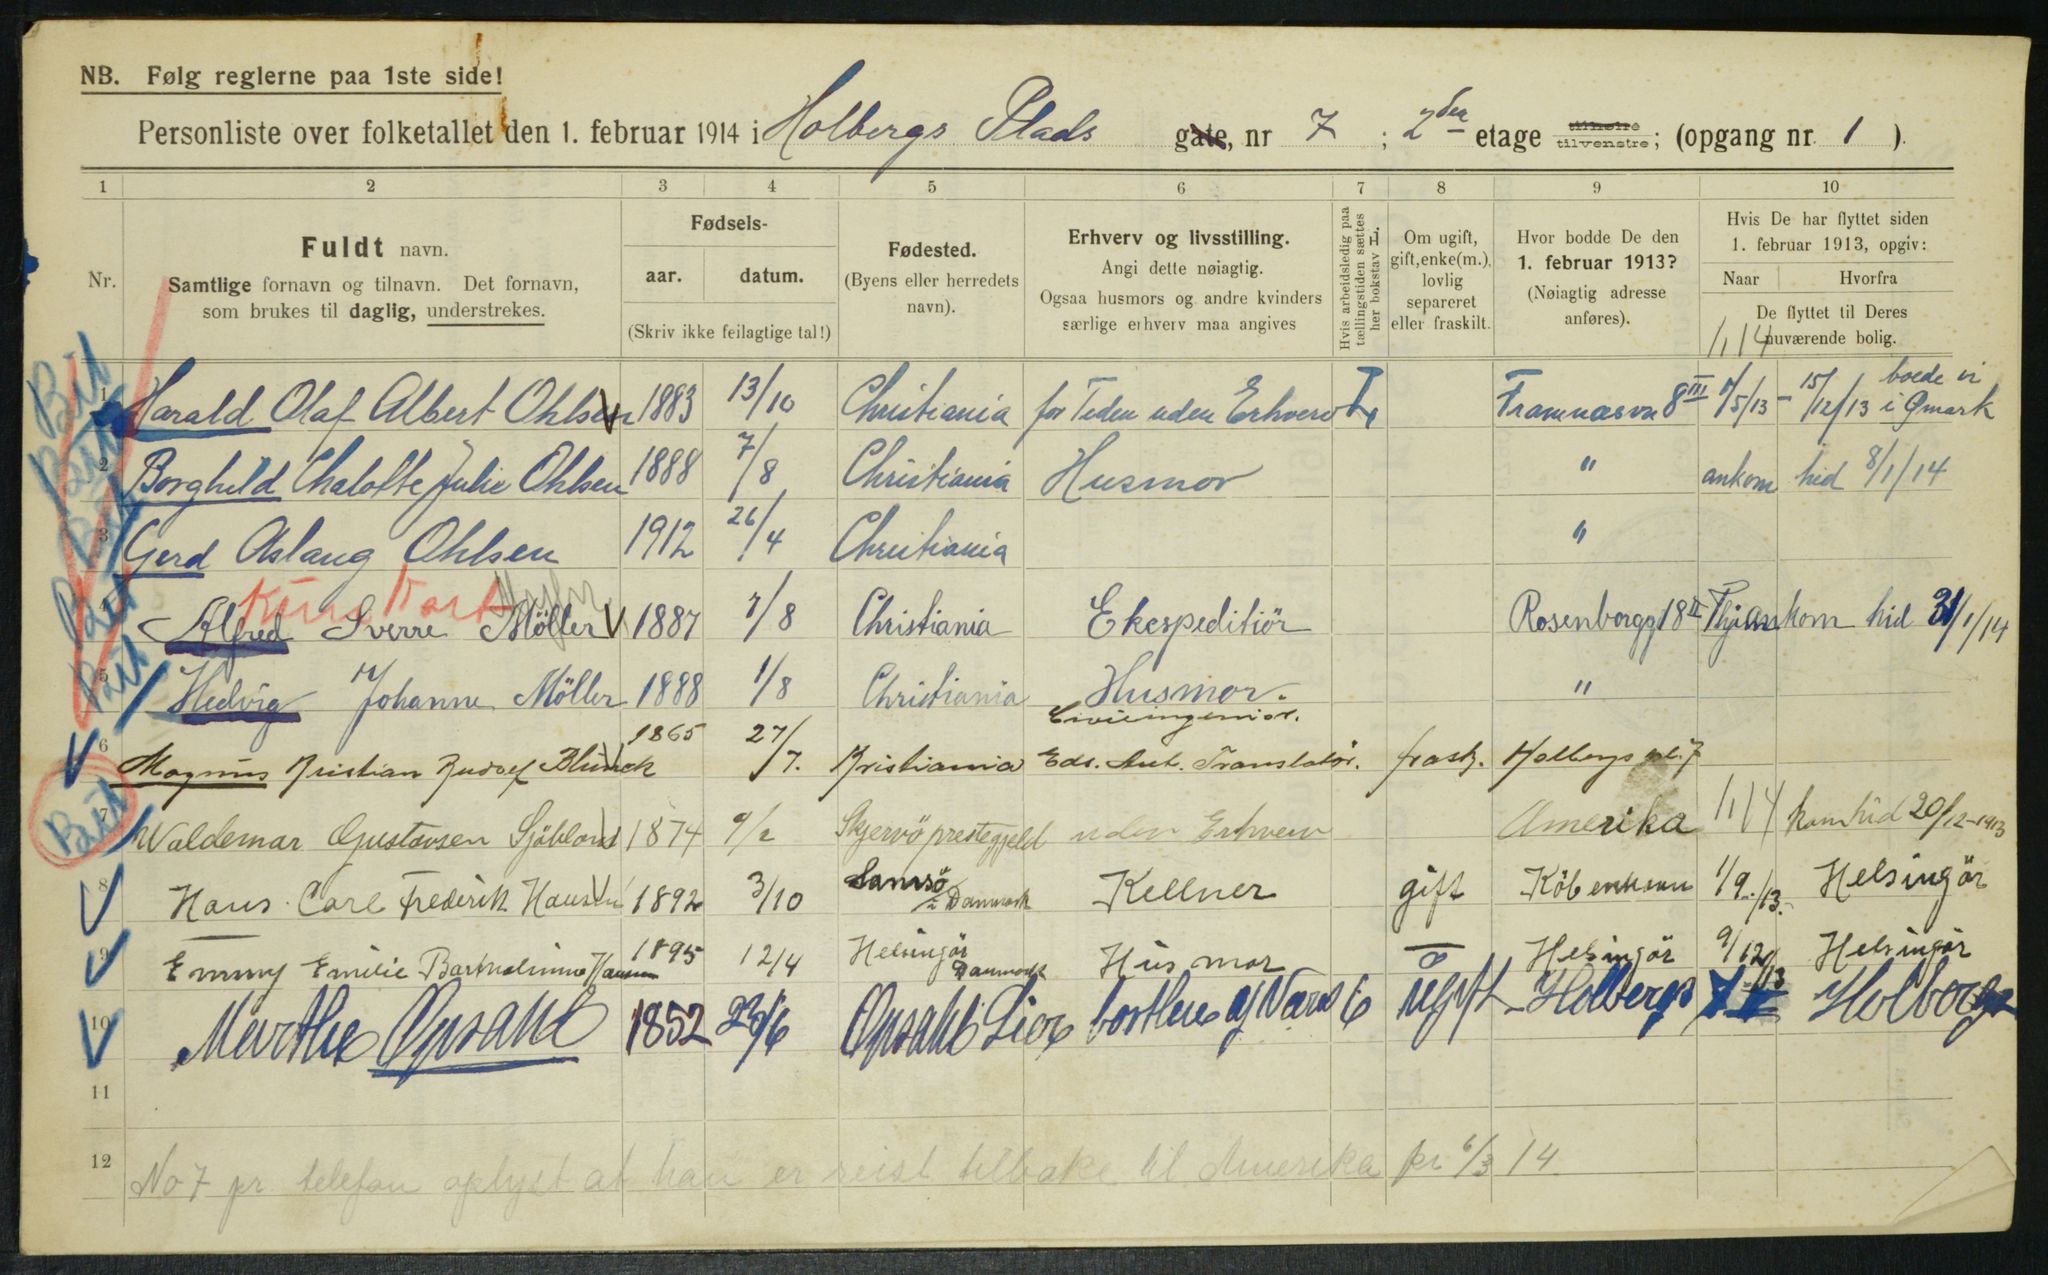 NB. Følg reglerne paa 1ste side!
Personliste over folketallet den 1. februar 1914 i Holbergs Plads gate, nr 7 ; 2den etage tilhøire tilvenstre; (opgang nr. 1 ).
1 2 3 4 5 6 7 8 9 10
Nr.
Fuldt navn.
Samtlige fornavn og tilnavn. Det fornavn,
som brukes til daglig, understrekes.
Fødsels-
aar. datum.
(Skriv ikke feilagtige tal!)
Fødested.
(Byens eller herredets
navn).
Erhverv og livsstilling.
Angi dette nøiagtig.
Ogsaa husmors og andre kvinders
særlige erhverv maa angives
Hvis arbeidsledig paa
tællingstiden sættes
her bokstav L.
Om ugift,
gift, enke(m.),
lovlig
separeret
eller fraskilt.
Hvor bodde De den
1. februar 1913?
(Nøiagtig adresse
anføres).
Hvis De har flyttet siden
1. februar 1913, opgiv:
Naar Hvorfra
De flyttet til Deres
nuværende bolig.
1/1 14
1 Harald Olaf Albert Ohlsen 1883 13/10 Christiania for Tiden uden Erhverv L Framnæsvn 8 III 1/5/13 - 15/12/13 boede vi i Ømark
2 Borghild Chalotte Julie Ohlsen 1888 7/8 Christiania Husmor " ankom hid 8/1/14
3 Gerd Aslaug Ohlsen 1912 26/4 Christiania "
4 Alfred Sverre Möller 1887 7/8 Christiania Ekspeditiör Rosenborgg 18 II ankom hid 31/1/14
5 Hedvig Johanne Möller 1888 1/8 Christiania Husmor. "
Civilingeniör.
6 Magnus Kristian Rudolf Blunck 1865 27/7. Kristiania Eds. Aut. Translatör. frask. Holbergs pl. 7
7 Waldemar Gustavsen Sjöblond 1874 9/2 Skjervö prestegjeld uden Erhverv Amerika 1/1 14 kom hid 20/12-1913
8 Hans Carl Frederik Hansen 1892 3/10 Samsö Danmark Kellner gift Köbenhavn 1/9/13. Helsingör
9 Emmy Emilie Bartholinne Hansen 1895 12/4 Helsingör Danmark Husmor Helsingör 9/12/13 Helsingör
10 Merthe Opsahl 1852 23/6 Opsahl Lier ugift Holbergs Holbergs
11
12 No 7 pr. telefon oplyst at han er reist tilbake til Amerika pr 6/3 14.